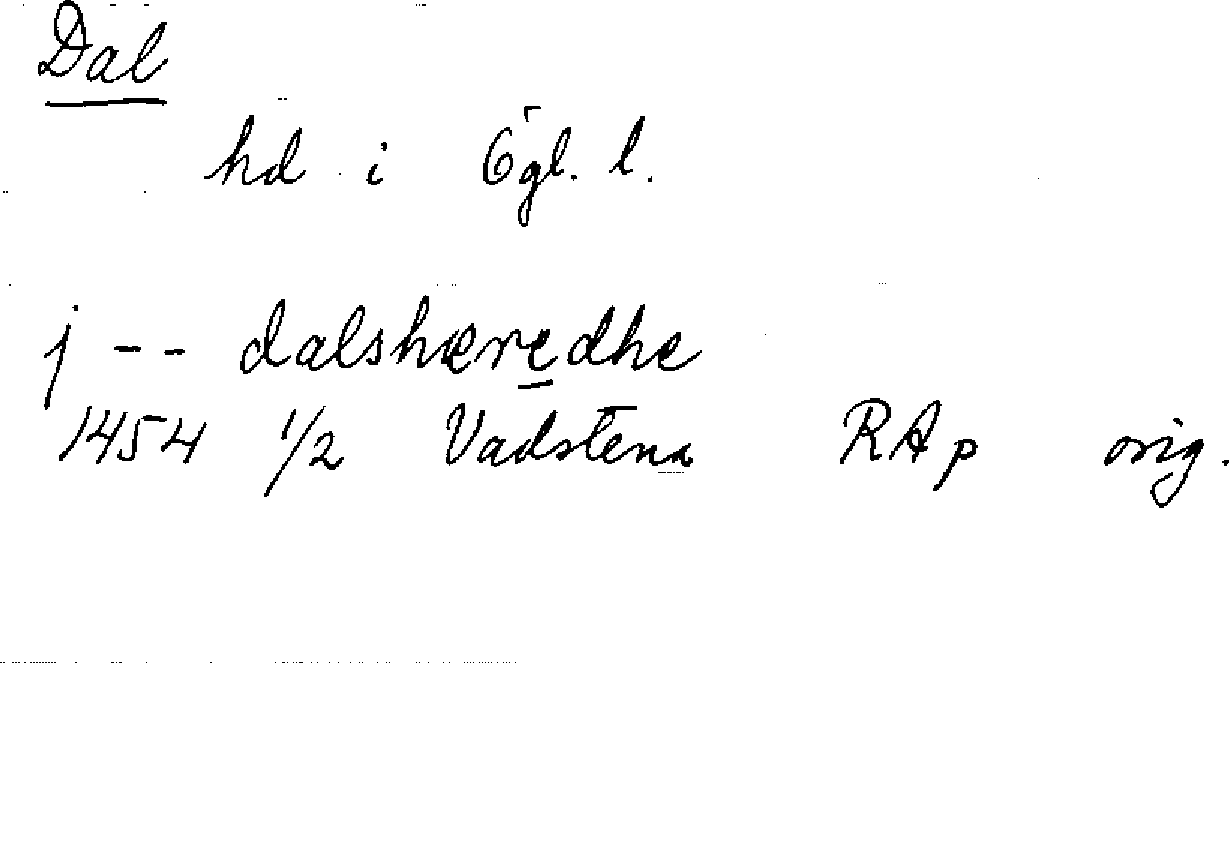 Dal
hd i Ögl. l.
j -- dalshæredhe
1454 1/2 Vadstena RAp orig.